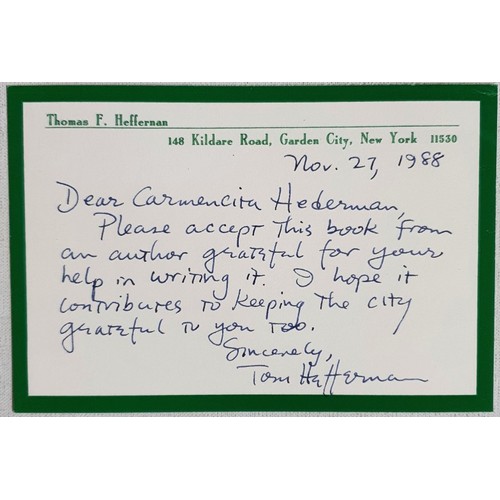 Thomas F. Heffernan
148 Kildare Road, Garden City, New York 11530
Nov. 27, 1988
Dear Carmencita Hederman,
Please accept this book from
an author grateful for your
help in writing it. I hope it
contributes to keeping the city
grateful to you too.
Sincerely,
Tom Heffernan